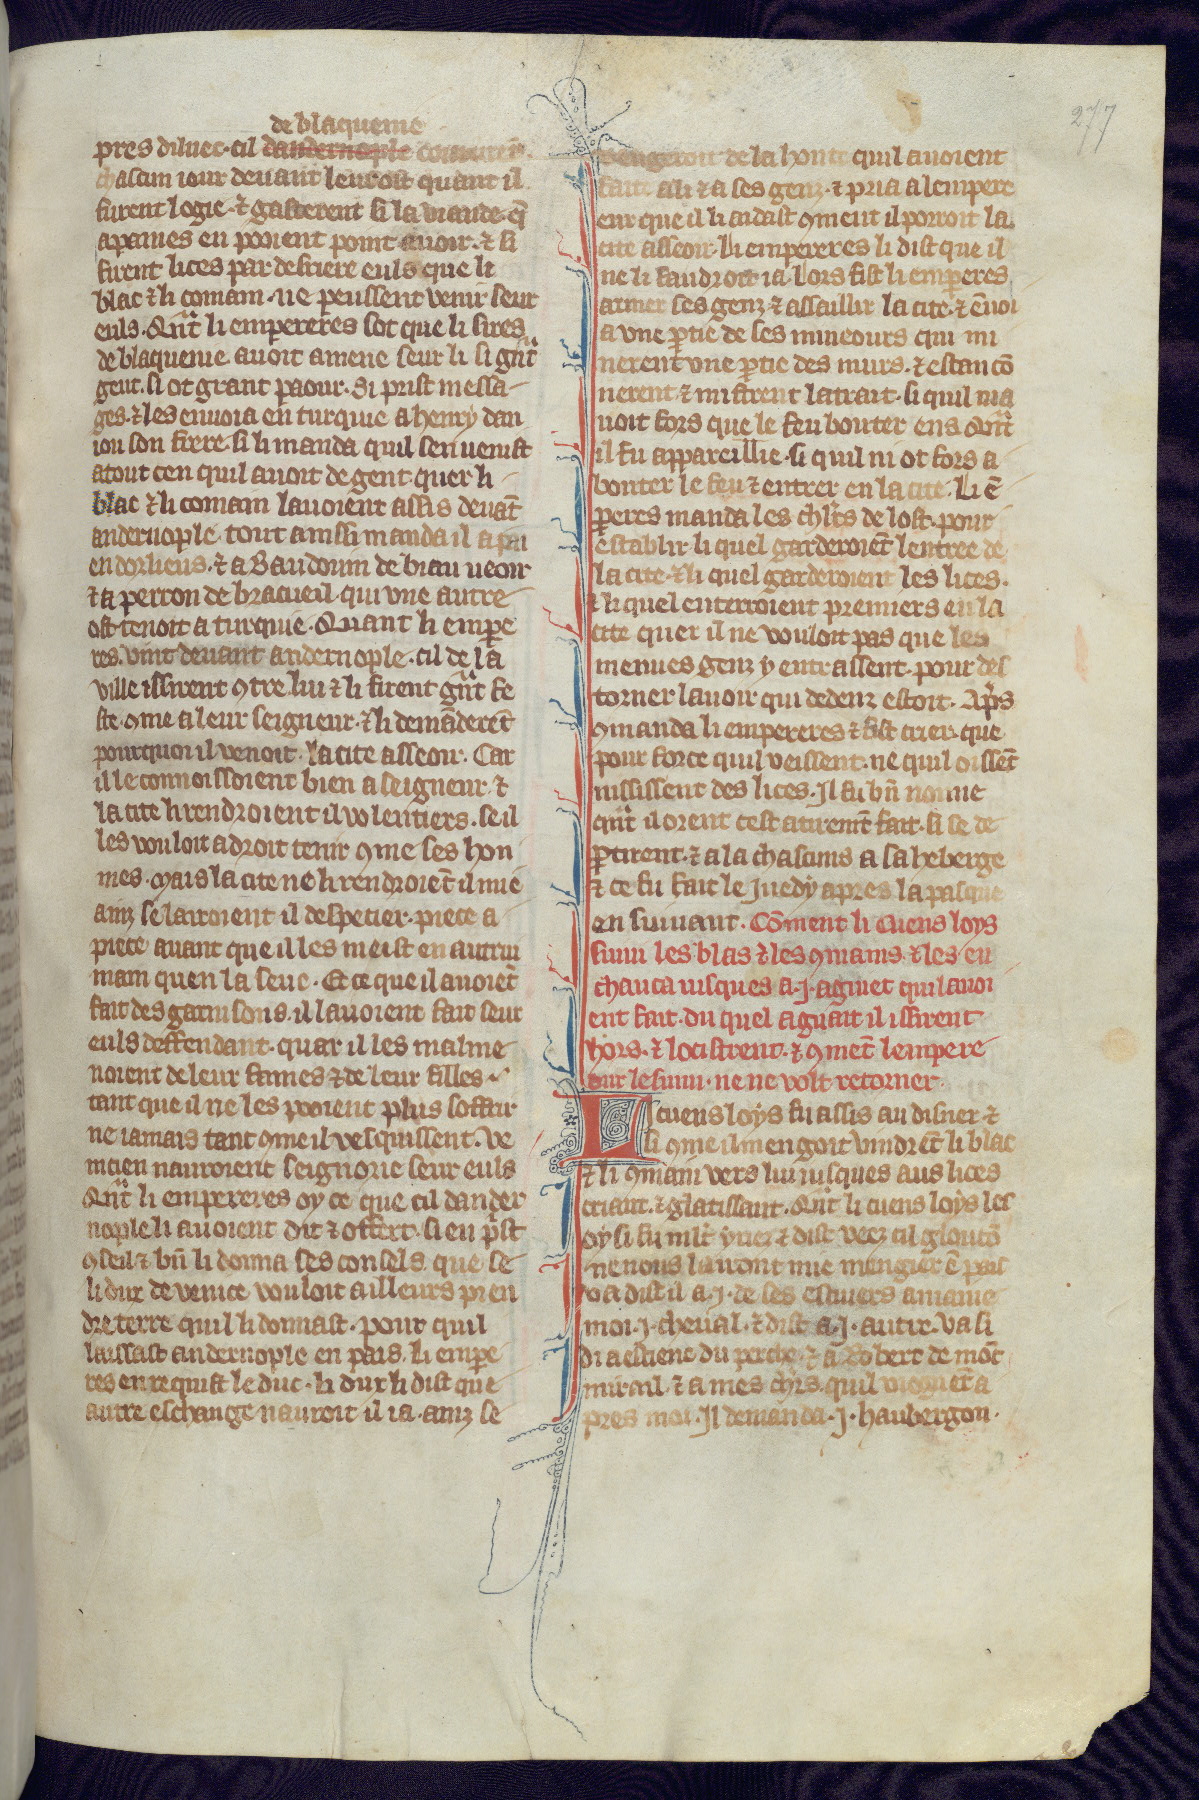 277
de blaquenie
pres diluec. cil dandernople couuroient
chascun iour deuant leur ost quant il
furent logie. ⁊ gasterent si la viande. q̄l
apaines en pooient point auoir. ⁊ si
firent lices par derriere euls que li
blac ⁊ li comain. ne peussent venir seur
euls. Qñt li empereres sot que li sires
de blaquenie. auoit amene seur li si gñt
gent. si ot grant paour. Si prist messa-
ges. ⁊ les enuoia en turquie a henry dan
iou son frere. si li manda quil sen venist
atout cen quil auoit de gent. quer li
blac ⁊ li comain lauoient assis deuāt
andernople. tout ainssi manda il a pai
en dorliens. ⁊ a Baudouin de biau ueoir
⁊ a perron de bracueil. qui vne autre
ost tenoit a turquie. Quant li empe
res. vint deuant andernople. cil de la
ville issirent ꝯtre lui ⁊ li firent gñt fe
ste. ꝯme a leur seigneur. ⁊ li demāderēt
pourquoi il venoit. la cite asseoir. Car
il le connoissoient bien a seigneur. ⁊
la cite li rendroient il volentiers. se il
les vouloit a droit tenir ꝯme ses hon
mes. Mais la cite ne li rendroiēt il mie
ainz se lairoient il despecier. piece a
piece auant que il les meist en autrui
main quen la seue. Et ce que il auoiēt
fait des garnisons. il lauoient fait seur
euls deffendant. quar il les malme
noient de leur fames ⁊ de leur filles.
tant que il ne les pooient plus soffrir
ne iamais tant ꝯme il vesquissent. ve
nicien nauroient seignorie seur euls
Qñt li empereres oy ce que cil dander
nople li auoient dit ⁊ offert. si en p̄st
ꝯseil ⁊ bñ li donna ses consels. que se
li dux de venice vouloit ailleurs pren
dre terre quil li donnast. pour quil
laissast andernople en pais. Li empe
res en requist le duc. li dux li dist que
autre eschange nauroit il ia. ainz se
vengeroit de la honte quil auoient
faite a li ⁊ a ses genz. ⁊ pria a lempere
eur que il li aidast ꝯment il porroit la
cite asseoir. Li empereres li dist que il
ne li faudroit ia. Lors fist li emperes
armer ses genz ⁊ assaillir la cite. ⁊ ēuoi
a vne ꝑtie de ses mineours qui mi
nerent vne ꝑtie des murs. ⁊ estancō
nerent. ⁊ mistrent latrait. si quil ni a
uoit fors que le feu bouter ens. Qñt
il fu appareillie. si quil ni ot fors a
bouter le feu ⁊ entrer en la cite. Li ē
peres manda les chl̄rs de lost. pour
establir. li quel garderoiēt lentree de
la cite. ⁊ li quel garderoient les lices.
⁊ li quel enterroient premiers en la
cite quer il ne vouloit pas que les
menues genz y entrassent. pour des
torner lauoir qui dedenz estoit. Ap̄s
ꝯmanda li empereres ⁊ fist crier. que
pour force quil veissent. ne quil oissēt
nississent des lices. Il fu bñ nonne
qñt il orent cest atirem̄t fait. si se de
ꝑtirent. ⁊ ala chascuns a sa heberge
⁊ ce fu fait le Juedy apres la pasque
en suiuant. Cōment li cuens loys
suiui les blas ⁊ les ꝯmains. ⁊ les en
chauca iusques a .j. aguiet quil auoi
ent fait. du quel aguait il issirent
hors. ⁊ locistrent. ⁊ ꝯmēt lempere
our le suiui. ne ne volt retorner.
Li cuens loys fu assis au disner ⁊
si ꝯme il mengoit vindrēt li blac
⁊ li ꝯmain vers lui iusques aus lices
criant. ⁊ glatissant. Qñt li cuens loys les
oy si fu ml̄t yriez ⁊ dist veez cil gloutō
ne nous lairont mie mengier ē pais
va dist il a .j. de ses escuiers amaine
moi .j. cheual. ⁊ dist a .j. autre. va si
di a estiene du perche. ⁊ a Robert de mōt
miroil. ⁊ a mes chl̄rs. quil viegnēt a
pres moi. Il demanda .j. haubergon.